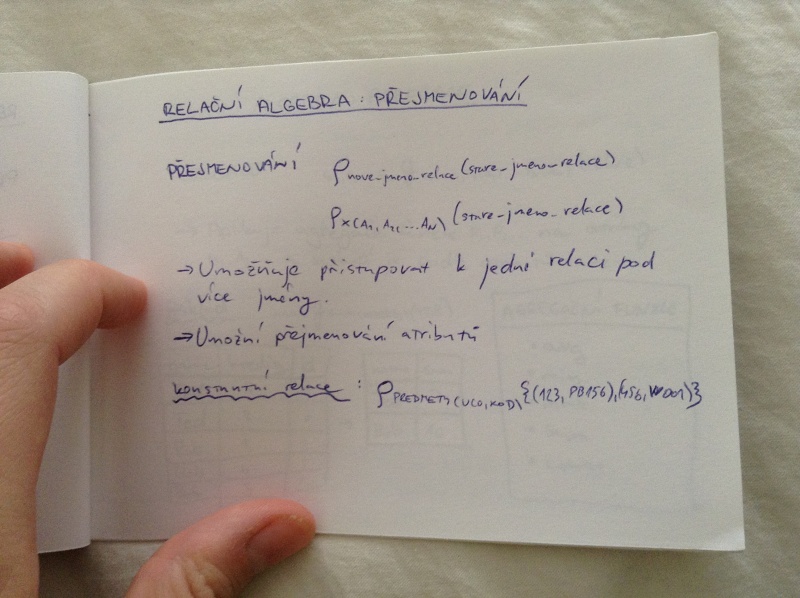 RELAČNÍ ALGEBRA: PŘEJMENOVÁNÍ
PŘEJMENOVÁNÍ ρ nove_jmeno_relace (stare_jmeno_relace)
ρ x(A1, A2, ... AN) (stare_jmeno_relace)
→ Umožňuje přistupovat k jedné relaci pod
více jmény.
→ Umožní přejmenování atributů
konstantní relace: ρ PREDMETY(UCO, KOD) {(123, PB156), (456, VV001)}